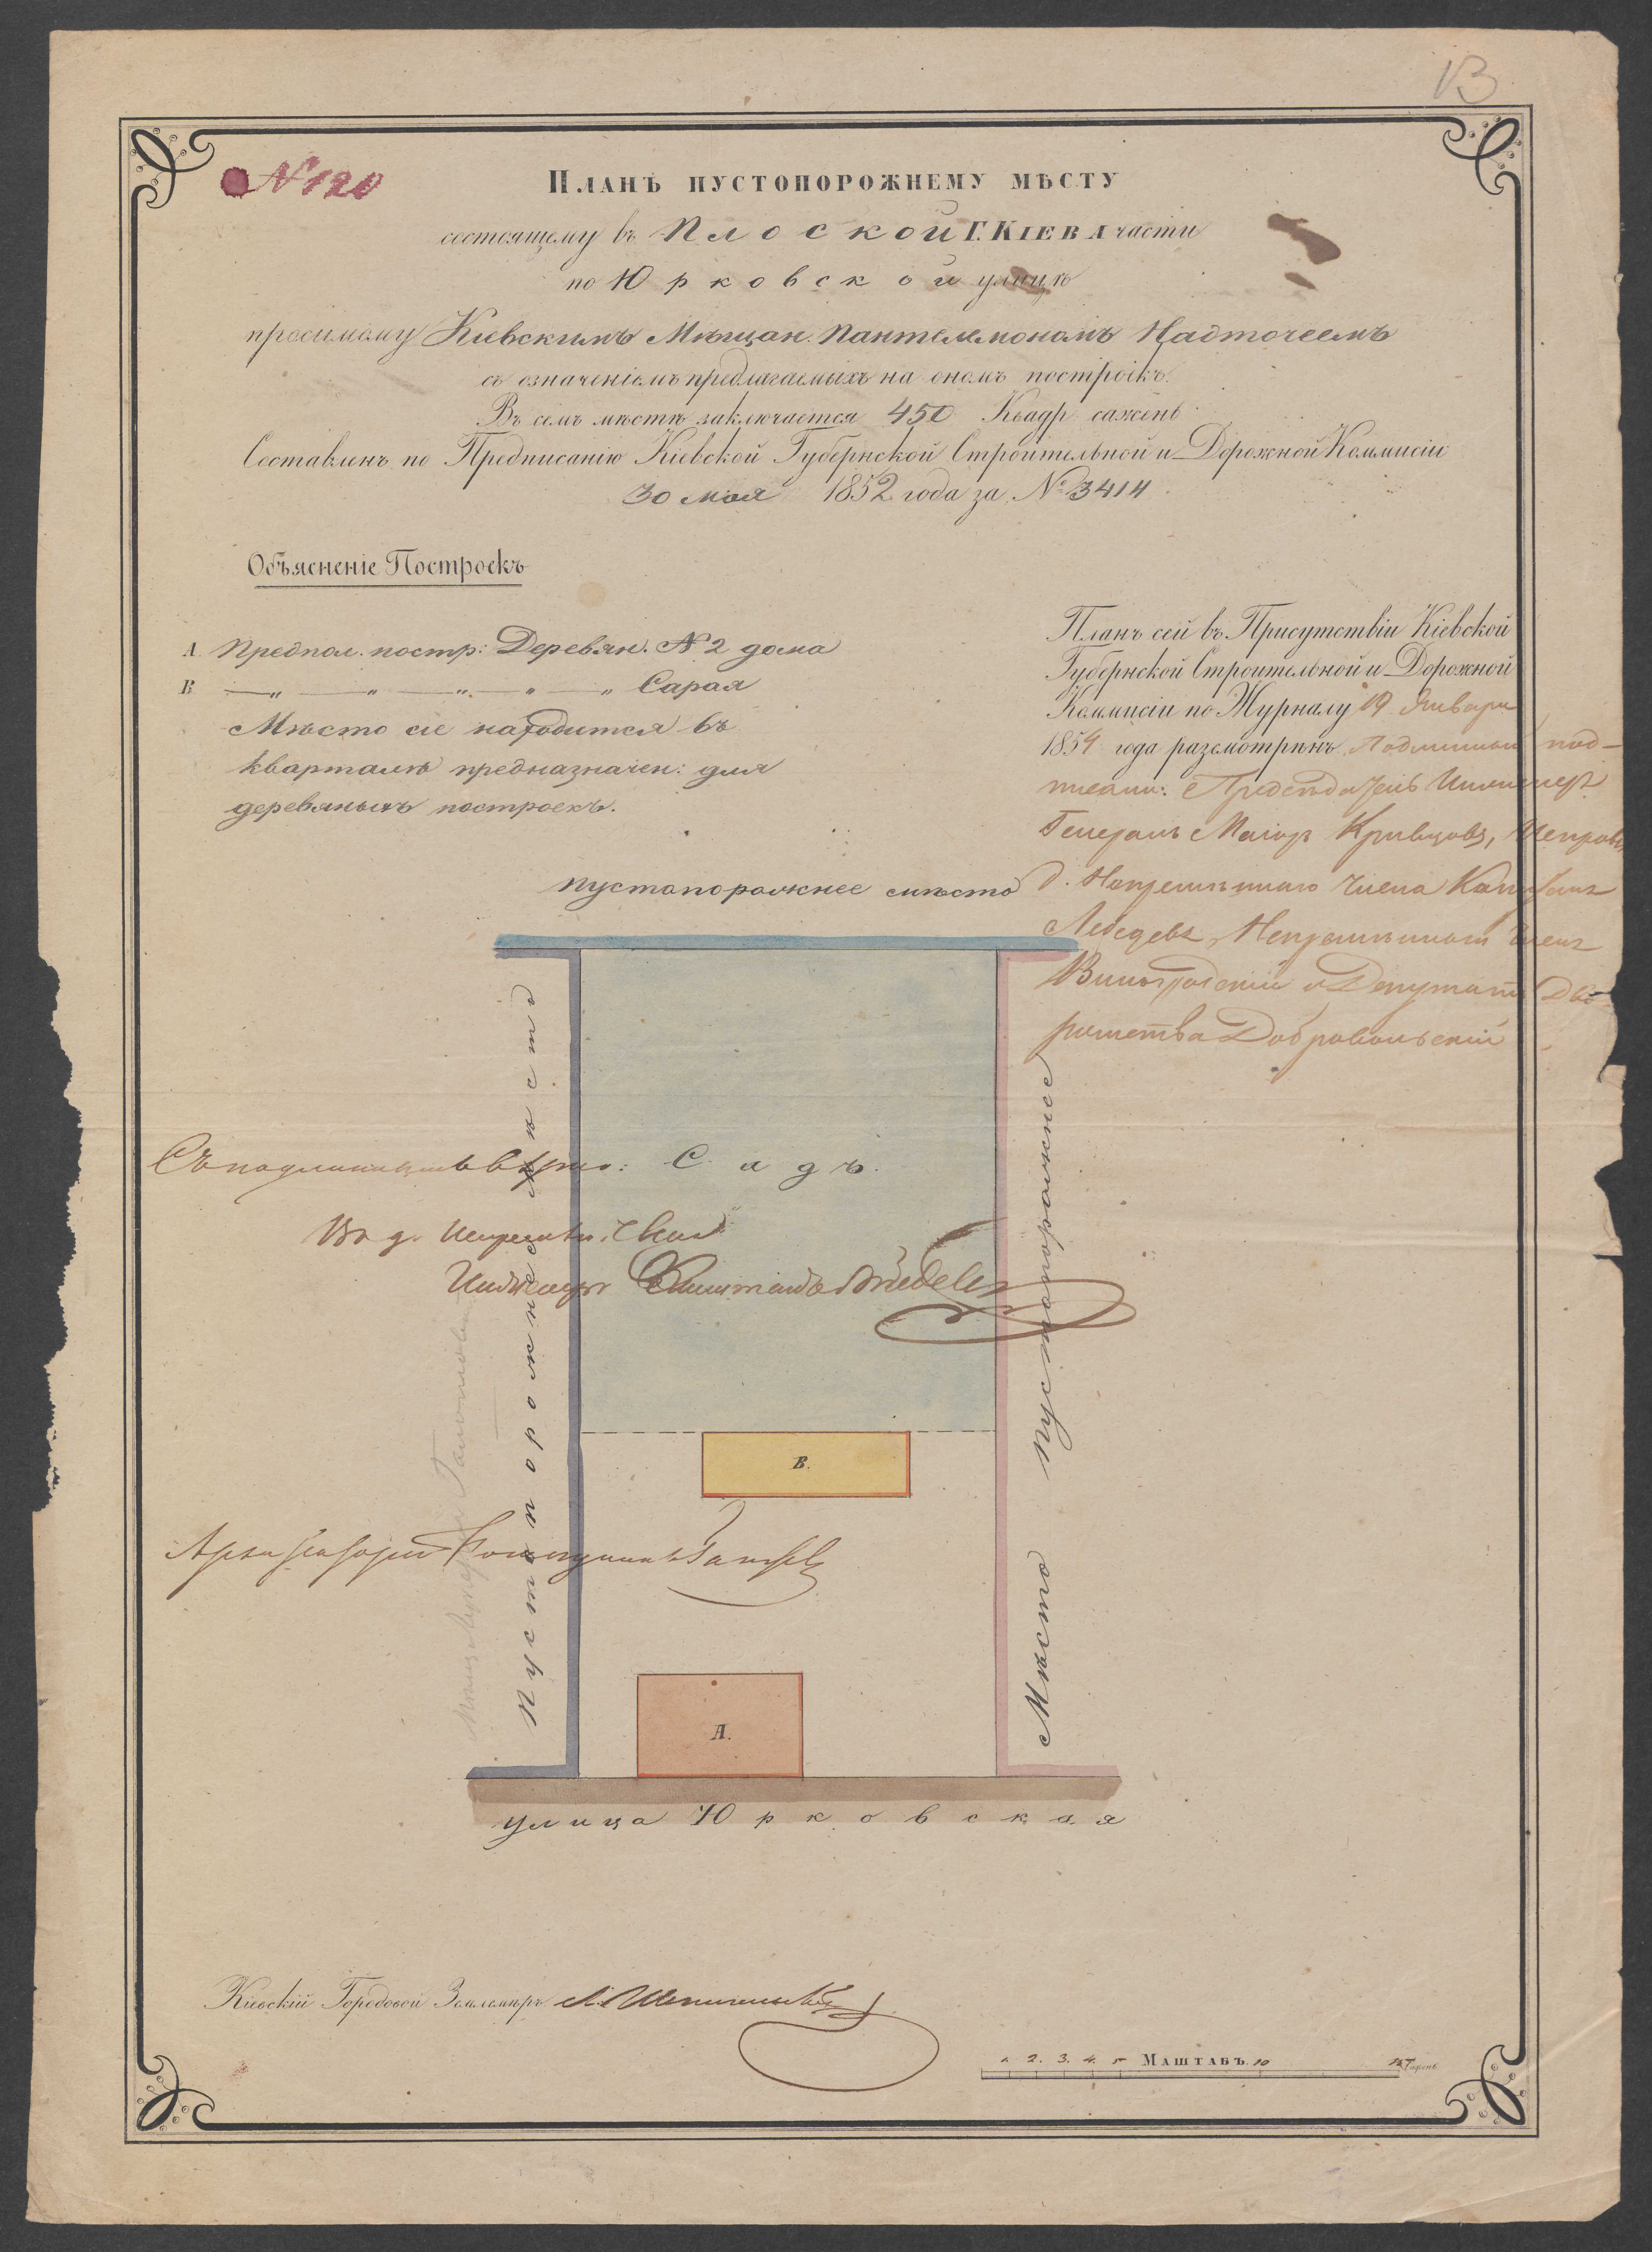 В
№ 120
Планъ пустопорожнему мѣсту
состоящему въ Плоской Г. Кіева части
по Юрковской улицѣ
просимому Кіевскимъ Мѣщан. Пантелемономъ Надточеемъ
съ означеніемъ предлагаемыхъ на ономъ построікъ.
Въ семъ мѣстѣ заключается 450 Квадр. сажень
Составленъ по Предписанію Кіевской Губернской Строительной и Дорожной Коммисіи
30 Мая 1852 года за № 3414
Объясненіе Построекъ
А. Предпол. постр: Деревян. № 2 дома
В. —„— —„— —„— —„— —„ Сарая
Мѣсто сіе находится въ
кварталѣ предназначен: для
деревяныхъ построекъ.
Планъ сей въ Присутствіи Кіевской
Губернской Строительной и Дорожной
Коммисіи по Журналу 19 Января
1854 года разсмотрѣнъ. Подлинный под-
писали: Предсѣдатель Инженеръ
Генералъ Маіоръ Кривцовъ, Исправ.
д. Непремѣннаго Члена Капитанъ
Лебедевъ, Непремѣнный Членъ
и Депутатъ Дво-
рянства Добровольскій
пустапорожнее мѣсто
Пустапорожнее мѣсто
Мѣсто пустапорожнее
Съ подлиннымъ вѣрно:
Садъ.
Въ д. Непремѣн. Члена
Инженеръ
В.
А.
улица Юрковская
Кіевскій Городовой Землемѣръ
1. 2. 3. 4. 5 Маштабъ. 10 15 Сажень